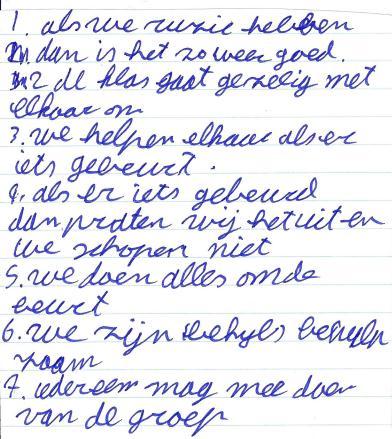 1. als we ruzie hebben
dan is het zo weer goed.
2 de klas gaat gezelig met
elkaar om
3. we helpen elkaar als er
iets gebeurt.
4. als er iets gebeurd
dan praten wij het uit en
we schopen niet
5. we doen alles om de
beurt
6. we zijn behulp
zaam
7. iedereen mag mee doen
van de groep